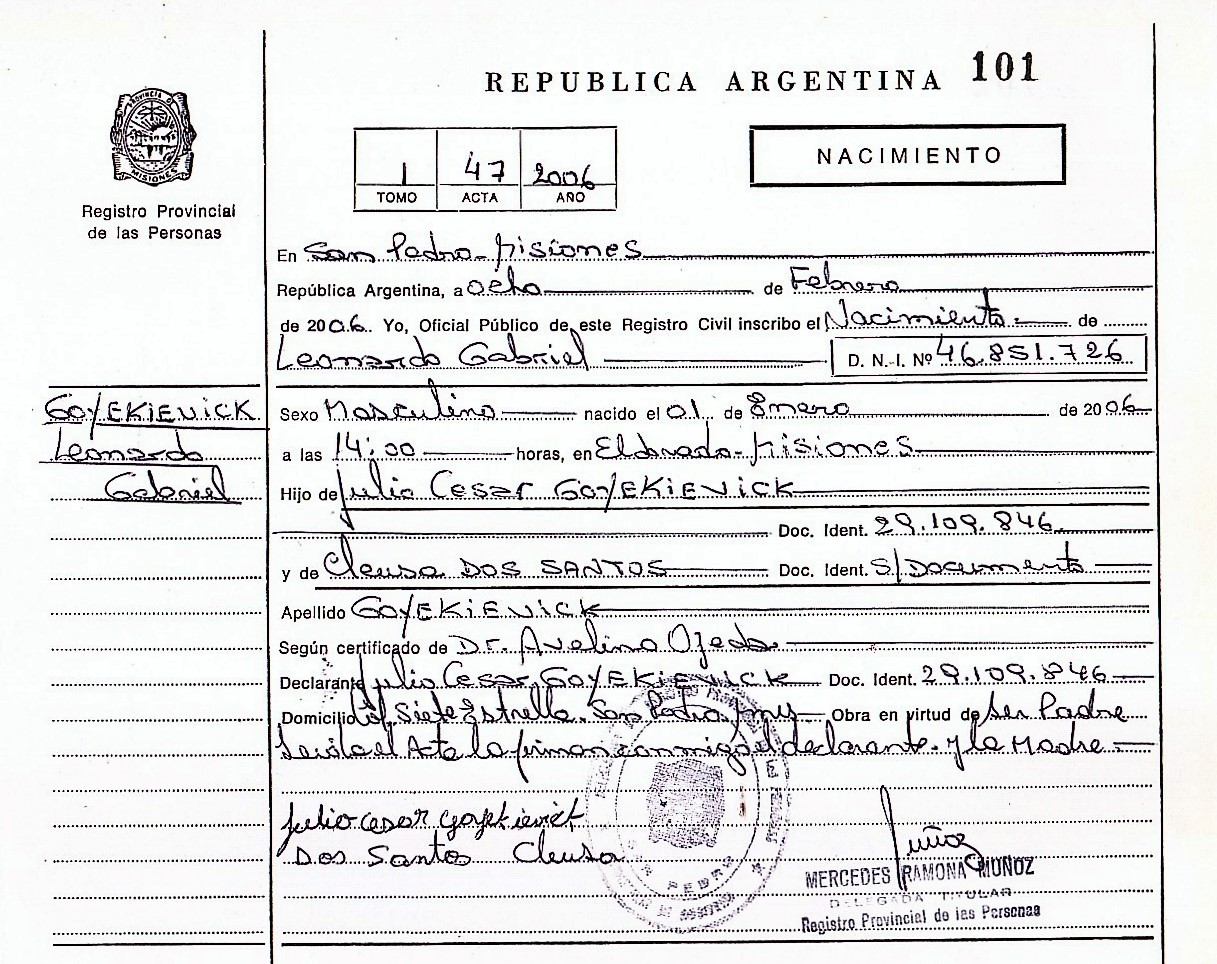 REPUBLICA ARGENTINA 101
PROVINCIA DE
MISIONES
Registro Provincial
de las Personas
1 47 2006
TOMO ACTA AÑO
NACIMIENTO
En San Pedro - Misiones
República Argentina, a ocho de Febrero
de 2006. Yo, Oficial Público de este Registro Civil inscribo el Nacimiento - de
Leonardo Gabriel D. N. I. Nº 46.851.726
GOYEKIEVICK
Leonardo
Gabriel
Sexo Masculino nacido el 01 de Enero de 2006
a las 14:00 horas, en Eldorado - Misiones
Hijo de Julio Cesar GOYEKIEVICK
Doc. Ident. 29.109.846
y de Cleusa DOS SANTOS Doc. Ident. S/Documento
Apellido GOYEKIEVICK
Según certificado de Dr. Avelino Ojeda
Declarante Julio Cesar GOYEKIEVICK Doc. Ident. 29.109.846
Domicilio Siete Estrella. San Pedro. Mnes Obra en virtud de ser Padre
Leida el Acta la firman conmigo el declarante y la Madre
Julio cesar goyekievick
Dos Santos Cleusa
SAN PEDRO
Muñoz
MERCEDES RAMONA MUÑOZ
DELEGADA TITULAR
Registro Provincial de las Personas